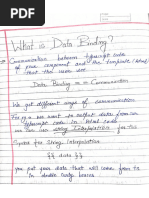 What is Data Binding?
Communication between typescript code
of your component and the template/html
that the user see
Data Binding = Communication
We get different ways of communication
For e.g we want to output data from our
typescript code in html code
we can use string Interpolation for this
Syntax for String Interpolation
{{ data }}
you put your data that will come from ts
in double curly braces